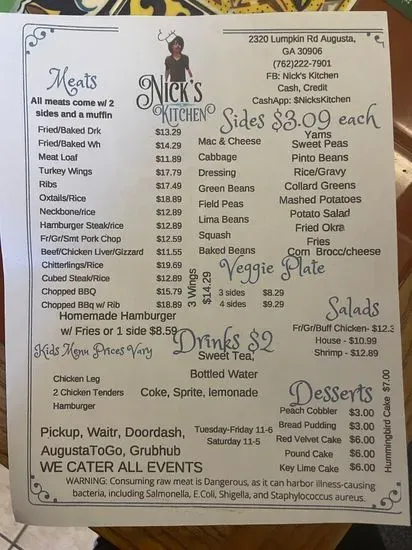 NICK'S
KITCHEN
2320 Lumpkin Rd Augusta,
GA 30906
(762)222-7901
FB: Nick's Kitchen
Cash, Credit
CashApp: $NicksKitchen
Meats
All meats come w/ 2
sides and a muffin
Fried/Baked Drk $13.29
Fried/Baked Wh $14.29
Meat Loaf $11.89
Turkey Wings $17.79
Ribs $17.49
Oxtails/Rice $18.89
Neckbone/rice $12.89
Hamburger Steak/rice $12.89
Fr/Gr/Smt Pork Chop $12.59
Beef/Chicken Liver/Gizzard $11.55
Chitterlings/Rice $19.69
Cubed Steak/rice $12.89
Chopped BBQ $15.79
Chopped BBq w/ Rib $18.89
3 Wings
$14.29
Homemade Hamburger
w/ Fries or 1 side $8.59
Sides $3.09 each
Mac & Cheese
Cabbage
Dressing
Green Beans
Field Peas
Lima Beans
Squash
Baked Beans
Yams
Sweet Peas
Pinto Beans
Rice/Gravy
Collard Greens
Mashed Potatoes
Potato Salad
Fried Okra
Fries
Corn Brocc/cheese
Veggie Plate
3 sides $8.29
4 sides $9.29
Salads
Fr/Gr/Buff Chicken- $12.3
House - $10.99
Shrimp - $12.89
Kids Menu Prices Vary
Chicken Leg
2 Chicken Tenders
Hamburger
Drinks $2
Sweet Tea,
Bottled Water
Coke, Sprite, lemonade
Desserts
Peach Cobbler $3.00
Bread Pudding $3.00
Red Velvet Cake $6.00
Pound Cake $6.00
Key Lime Cake $6.00
Hummingbird Cake $7.00
Pickup, Waitr, Doordash,
AugustaToGo, Grubhub
WE CATER ALL EVENTS
Tuesday-Friday 11-6
Saturday 11-5
WARNING: Consuming raw meat is Dangerous, as it can harbor illness-causing
bacteria, including Salmonella, E.Coli, Shigella, and Staphylococcus aureus.